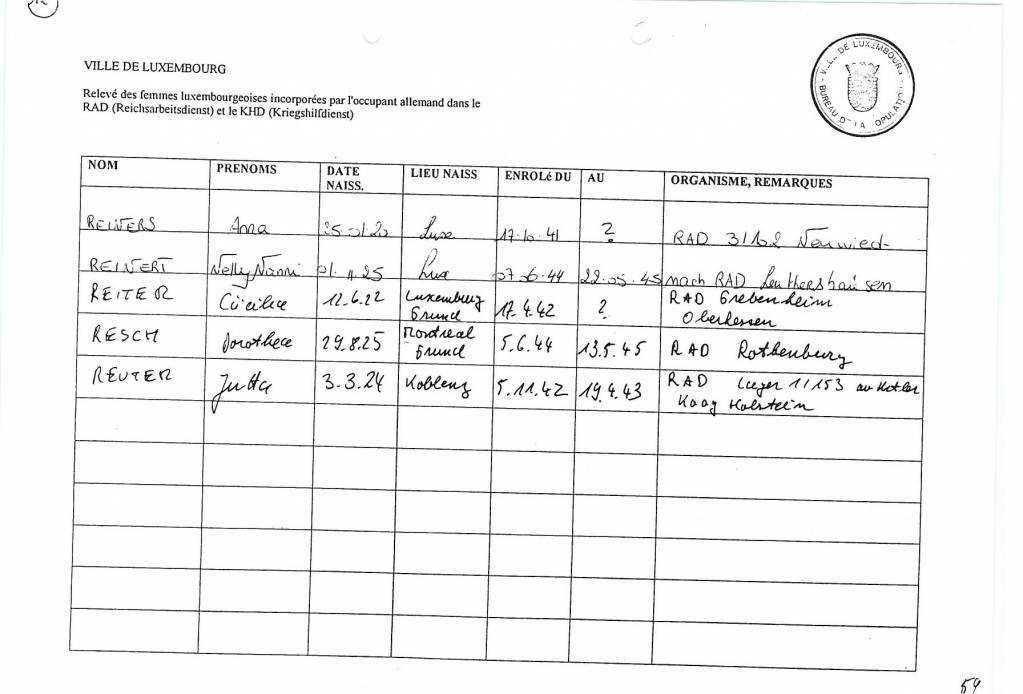 VILLE DE LUXEMBOURG
VILLE DE LUXEMBOURG
BUREAU DE LA POPULATION
Relevé des femmes luxembourgeoises incorporées par l'occupant allemand dans le
RAD (Reichsarbeitsdienst) et le KHD (Kriegshilfdienst)
NOM PRENOMS DATE NAISS. LIEU NAISS ENROLé DU AU ORGANISME, REMARQUES
REINERS Anna Luxe 17.10.41 ? RAD 3/102 Neuwied
REINERT Nelly Nanni 01.11.25 Lux 07-6-44 22.05.45 nach RAD Leuthershausen
REITER Cäcilie 12.6.22 Luxemburg Grund 17.4.42 ? RAD Grebenheim
Oberhessen
RESCH Dorothee 29.8.25 Montreal Grund 5.6.44 13.5.45 RAD Rothenburg
REUTER Jutta 3.3.24 Koblenz 5.11.42 19.4.43 RAD Lager 11/153
Holstein
59